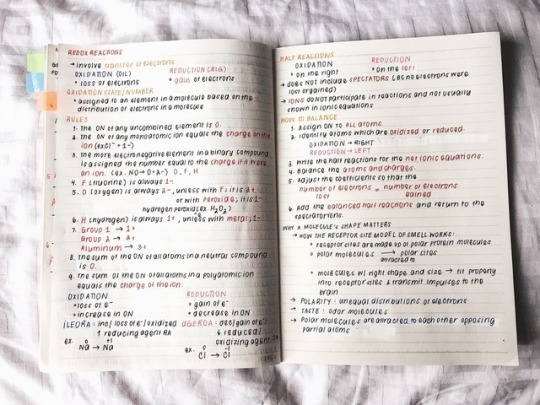 REDOX REACTIONS
→ involve transfer of electrons
OXIDATION (OIL) REDUCTION (RIG)
• loss of electrons • gain of electrons
OXIDATION STATE/NUMBER
• assigned to an element in a molecule based on the
distribution of electrons in a molecule
RULES
1. the ON of any uncombined element is 0.
2. the ON of any monatomic ion equals the charge on the
ion (ex Cl⁻ = 1-)
3. the more electronegative element in a binary compound
is assigned the number equal to the charge if it were
an ion. (ex. NO → O = 2-) O, F, N
4. F (fluorine) is always 1-
5. O (oxygen) is always 2-, unless with F: it is 2+
or with peroxide: it is 1-
hydrogen peroxide (ex H₂O₂)
6. H (hydrogen) is always 1+, unless with metal: 1-
7. Group 1 → 1+
Group 2 → 2+
Aluminum → 3+
8. the sum of the ON of all atoms in a neutral compound
is 0.
9. the sum of the ON of all atoms in a polyatomic ion
equals the charge of the ion.
OXIDATION REDUCTION
• loss of e⁻ • gain of e⁻
• increase in ON • decrease in ON
inc/loss of e⁻/oxidized dec/gain of e⁻
reducing agent reduced/
oxidizing agent
ex: Na → Na ex: Cl → Cl
HALF REACTIONS
OXIDATION REDUCTION
• on the right • on the left
→ does not include SPECTATORS (bc no electrons were
lost or gained)
→ IONS do not participate in reactions and not usually
shown in ionic equations
HOW TO BALANCE
1. Assign ON to ALL atoms.
2. Identify atoms which are oxidized or reduced.
OXIDATION → RIGHT
REDUCTION → LEFT
3. Write the half reactions for the net ionic equations.
4. Balance the atoms and charges
5. Adjust the coefficients so that the
number of electrons = number of electrons
lost gained
6. Add the balanced half reactions and return to the
spectator ions.
WHY A MOLECULE'S SHAPE MATTERS
→ HOW THE RECEPTOR SITE MODEL OF SMELL WORKS:
• receptor sites are made up of polar protein molecules
• polar molecules → polar sites
attracted to
• molecules w/ right shape and size → fit properly
into receptor sites & transmit impulses to the
brain
→ POLARITY: unequal distributions of electrons
→ TASTE: odor molecules
→ Polar molecules are attracted to each other opposing
partial atoms